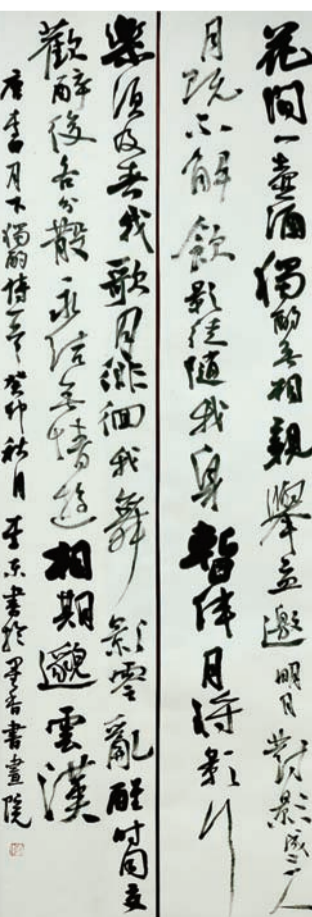 花間一壺酒獨酌無相親舉盃邀明月對影成三人
月既不解飲影徒隨我身暫伴月將影行
樂須及春我歌月徘徊我舞影零亂醒時同交
歡醉後各分散永結無情遊相期邈雲漢
唐李白月下獨酌詩一首癸卯秋月李東書於墨香書畫院